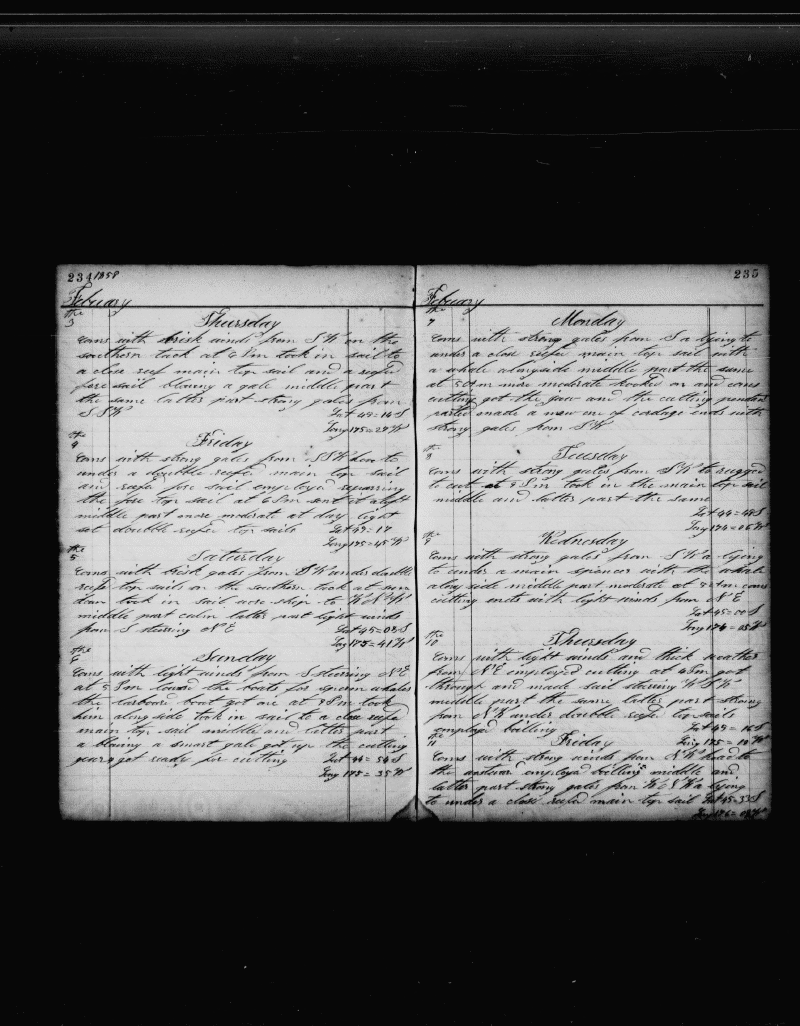 234 1858
Febuary
the
3
Thursday
Coms with brisk winds from SW on the
southern tack at 6 Pm took in sail to
a close reef main top sail and a reefed
fore sail blowing a gale middle part
the same latter part strong gales from
SSW Lat 49=14 S
Long 175=29 W
the
4
Friday
Coms with strong gales from SSW
under a double reefed main top sail
and reefe fore sail employed repairing
the fore top sail at 6 Pm sent it aloft
middle part more moderate at day light
set double reefed top sails Lat 47=17
Long 175=45 W
the
5
Saturday
Coms with brisk gales from SW under double
reefe top sails on the southern tack at sun
down took in sail wore ship to WNW
middle part calm latter part light winds
from S steering NE Lat 45=08 S
Long 175=41 W
the
6
Sunday
Coms with light winds from S steering NE
at 5 Pm lowerd the boats for sperm whales
the larboard boat got one at 8 Pm took
him along side took in sail to a close reefed
main top sail middle and latter part
a blowing a smart gale got up the cutting
gear & got ready for cutting Lat 44=54 S
Long 175=35 W
235
Febuary
the
7
Monday
Coms with strong gales from S a lying to
under a close reefe main top sail with
a whale alongside middle part the same
at 5 Am more moderate hooked on and coms
cutting got the jaw and the cutting pendent
parted made a new one of cordage ends with
strong gales from SW
the
8
Tuesday
Coms with strong gales from SW to rugged
to cut at 7 Pm took in the main top sail
middle and latter part the same
Lat 44=48 S
Long 174=06 W
the
9
Wednesday
Coms with strong gales from SW a lying
to under a main spencer with the whale
along side middle part moderate at 8 Am coms
cutting ends with light winds from NE
Lat 45=00 S
Long 174=05 W
the
10
Thursday
Coms with light winds and thick weather
from NE employed cutting at 4 Pm got
through and made sail steering WSW
middle part the same latter part strong
from NW under double reefe top sails
employed boiling Lat 45=16 S
the
11
Friday Long 175=10 W
Coms with strong winds from NW head to
the westward employed boiling middle and
latter part strong gales from WNW a lying
to under a close reefe main top sail Lat 45=33 S
Long 176=08 W